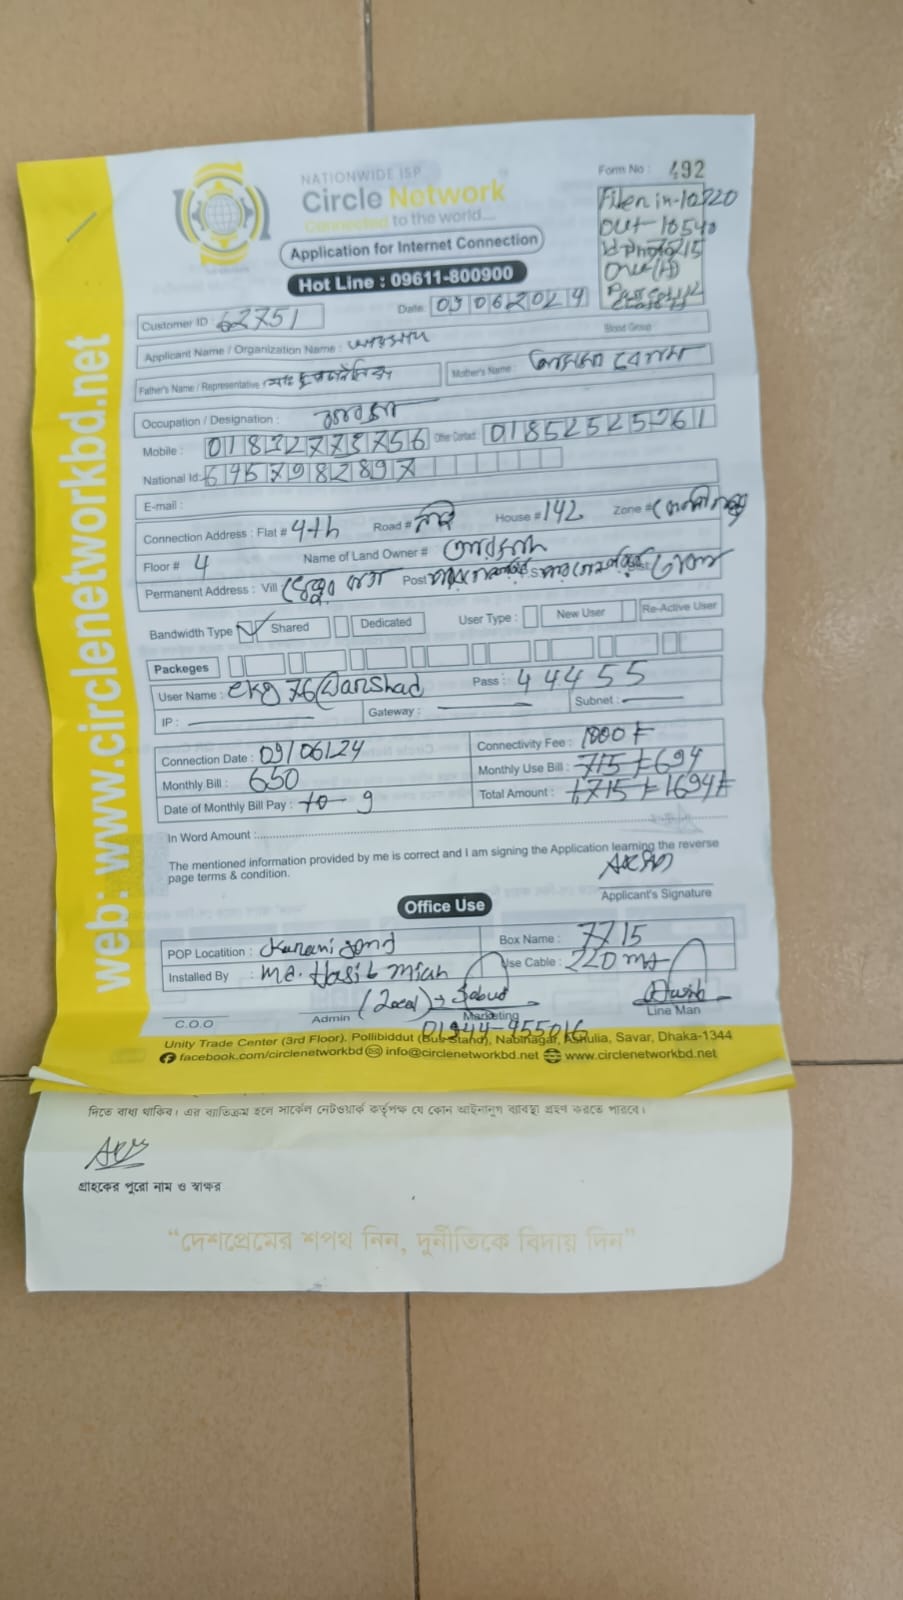 NATIONWIDE ISP
Circle Network
Connected to the world....
Application for Internet Connection
Hot Line : 09611-800900
Form No : 492
Fiber in-10320
out-10540
Customer ID 62751
Date: 09062024
Blood Group
Applicant Name / Organization Name : আরসাদ
Father's Name / Representative
Mother's Name : বেগম
Occupation / Designation : ব্যবসা
Mobile : 01832773756 Other Contact: 01852525261
National Id: 6457982897
E-mail :
Connection Address : Flat # 4th Road # নাই House # 142 Zone #
Floor # 4 Name of Land Owner #
Permanent Address : Vill Post
Bandwidth Type Shared Dedicated User Type : New User Re-Active User
Packeges
User Name : ckg76@arshad Pass : 44455
IP : Gateway : Subnet :
Connection Date : 09/06/24 Connectivity Fee : 1000 ৳
Monthly Bill : 650 Monthly Use Bill : 715 ৳ 694
Date of Monthly Bill Pay : to-9 Total Amount : 1715 ৳ 1694৳
In Word Amount :
The mentioned information provided by me is correct and I am signing the Application learning the reverse
page terms & condition.
Applicant's Signature
Office Use
POP Locatition : Karanigong Box Name : 7715
Installed By : Md. Hasib Miah Use Cable : 220 mt
(Local) → Sabuj Hasib
C.O.O Admin Marketing Line Man
01944-955016
Unity Trade Center (3rd Floor). Pollibiddut (Bus Stand), Nabinagar, Ashulia, Savar, Dhaka-1344
facebook.com/circlenetworkbd info@circlenetworkbd.net www.circlenetworkbd.net
web: www.circlenetworkbd.net
দিতে বাধ্য থাকিব। এর ব্যতিক্রম হলে সার্কেল নেটওয়ার্ক কর্তৃপক্ষ যে কোন আইনানুগ ব্যাবস্থা গ্রহণ করতে পারবে।
গ্রাহকের পুরো নাম ও স্বাক্ষর
“দেশপ্রেমের শপথ নিন, দুর্নীতিকে বিদায় দিন”